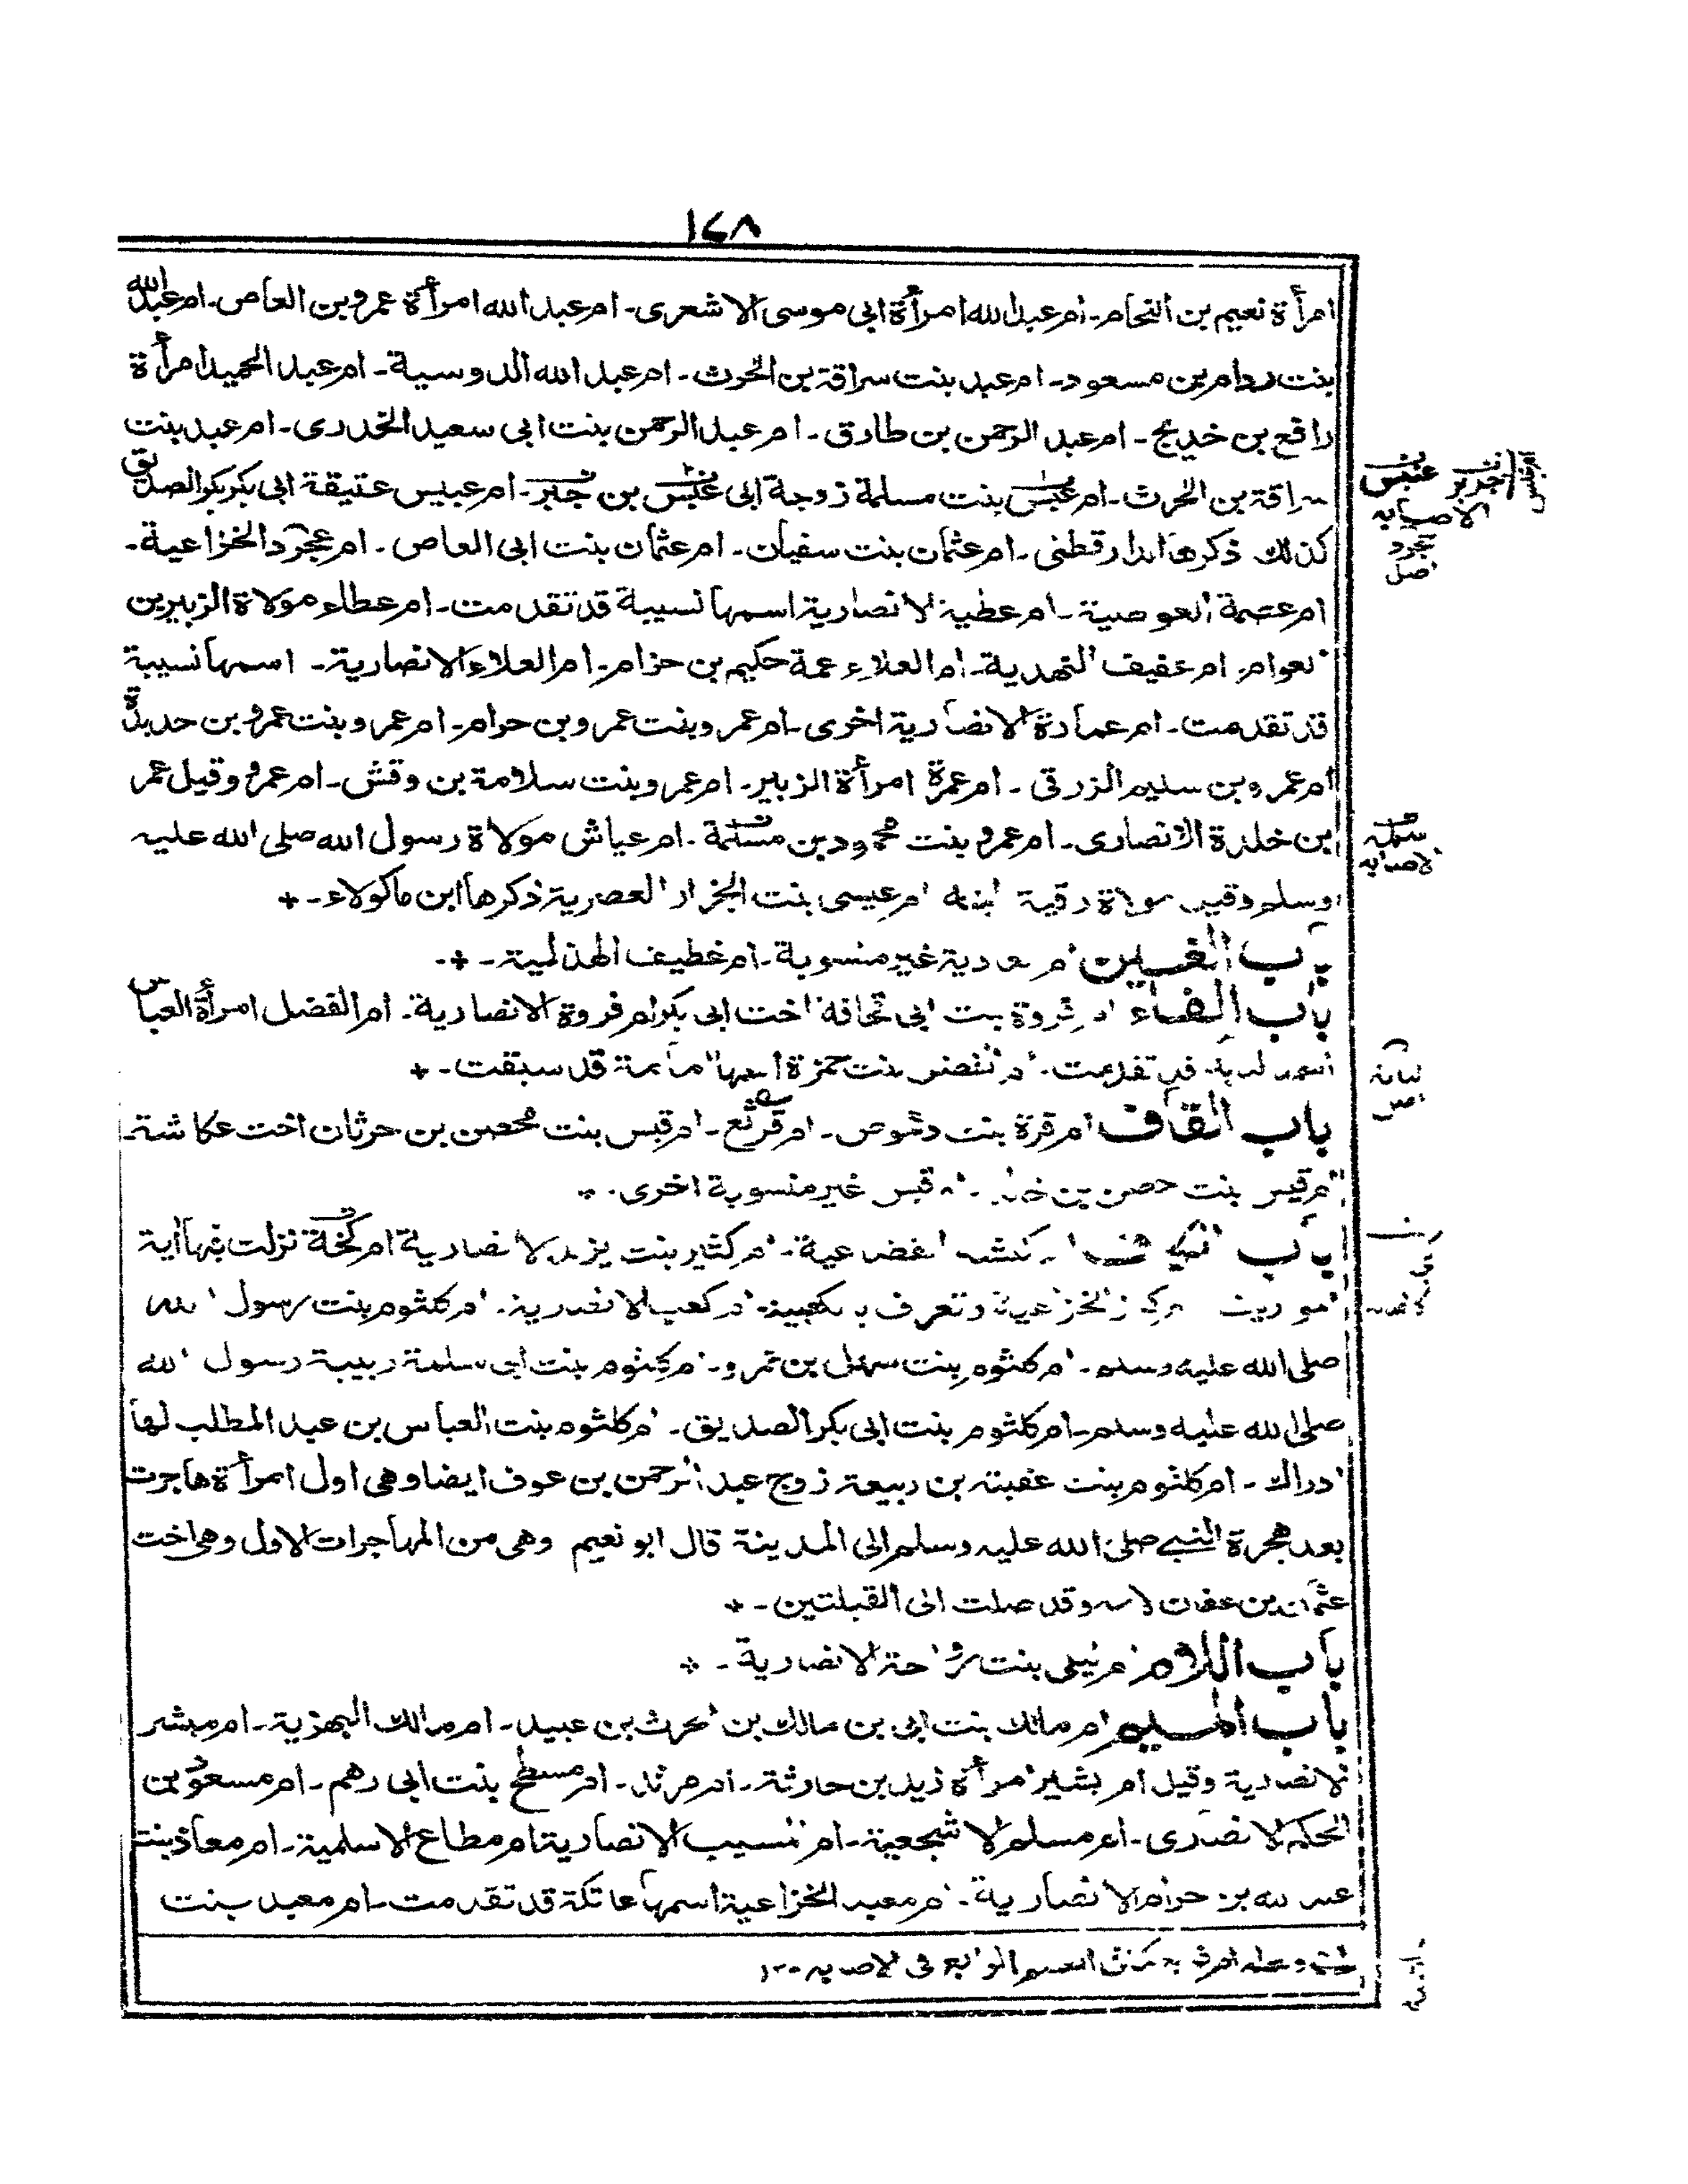 ١٤٨
امرأة نعيم بن النحام - ام عبد الله امرأة ابى موسى الاشعرى - ام عبد الله امرأة عمرو بن العاص - ام عبد الله
بنت بن مسعود - ام عبد بنت سراقة بن الحرث - ام عبد الله الدوسية - ام عبد الحميد امرأة
رافع بن خديج - ام عبد الرحمن بن طارق - ام عبد الرحمن بنت ابى سعيد الخدرى - ام عبد بنت
سراقة بن الحرث - ام عبس بنت مسلمة زوجة ابى عبس بن جبر - ام عبيس عتيقة ابى بكر الصديق
كذلك ذكرها الدارقطنى - ام عثمان بنت سفيان - ام عثمان بنت ابى العاص - ام عجرد الخزاعية -
ام عصمة العوصية - ام عطية الانصارية اسمها نسيبة قد تقدمت - ام عطاء مولاة الزبير بن
العوام - ام عفيف النهدية - ام العلاء عمة حكيم بن حزام - ام العلاء الانصارية - اسمها نسيبة
قد تقدمت - ام عمارة الانصارية اخرى - ام عمرو بنت عمرو بن حرام - ام عمرو بنت عمرو بن حديدة
ام عمرو بن سليم الزرقى - ام عمرة امرأة الزبير - ام عمرو بنت سلامة بن وقش - ام عمرو وقيل عمر
بن خلدة الانصارى - ام عمرو بنت محمود بن مسلمة - ام عياش مولاة رسول الله صلى الله عليه
وسلم وقيل مولاة رقية ابنته ام عيسى بنت الجزار العصرية ذكرها ابن ماكولاء - *
باب الغين ام غادية غير منسوبة - ام غطيف الهذلية - *
باب الفاء ام فروة بنت ابى قحافة اخت ابى بكر ام فروة الانصارية - ام الفضل امرأة العباس
اسمها لبابة قد تقدمت - ام الفضل بنت حمزة اسمها امامة قد سبقت - *
باب القاف ام قرة بنت دعموص - ام قرثع - ام قيس بنت محصن بن حرثان اخت عكاشة -
ام قيس بنت حصن بن - ام قيس غير منسوبة اخرى - *
باب الكاف ام كبشة القضاعية - ام كثير بنت يزيد الانصارية ام كجة نزلت فيها اية
المواريث ام كرز الخزاعية وتعرف بالكعبية - ام كعب الانصارية - ام كلثوم بنت رسول الله
صلى الله عليه وسلم - ام كلثوم بنت سهيل بن عمرو - ام كلثوم بنت ابى سلمة ربيبة رسول الله
صلى الله عليه وسلم - ام كلثوم بنت ابى بكر الصديق - ام كلثوم بنت العباس بن عبد المطلب لها
ادراك - ام كلثوم بنت عقبة بن ربيعة زوج عبد الرحمن بن عوف ايضا وهى اول امرأة هاجرت
بعد هجرة النبى صلى الله عليه وسلم الى المدينة قال ابو نعيم وهى من المهاجرات الاول وهى اخت
عثمان بن عفان لامه وقد صلت الى القبلتين - *
باب اللام ام ليلى بنت رواحة الانصارية - *
باب الميم ام مالك بنت ابى بن مالك بن الحرث بن عبيد - ام مالك البهزية - ام مبشر
الانصارية وقيل ام بشير امرأة زيد بن حارثة - ام مرثد - ام مسطح بنت ابى رهم - ام مسعود بن
الحكم الانصارى - ام مسلم الاشجعية - ام المسيب الانصارية ام مطاع الاسلمية - ام معاذ بنت
عبد الله بن حرام الانصارية - ام معبد الخزاعية اسمها عاتكة قد تقدمت - ام معبد بنت
عنبس
الاصابه
عجرد
اصل
الاصابه
لبابة